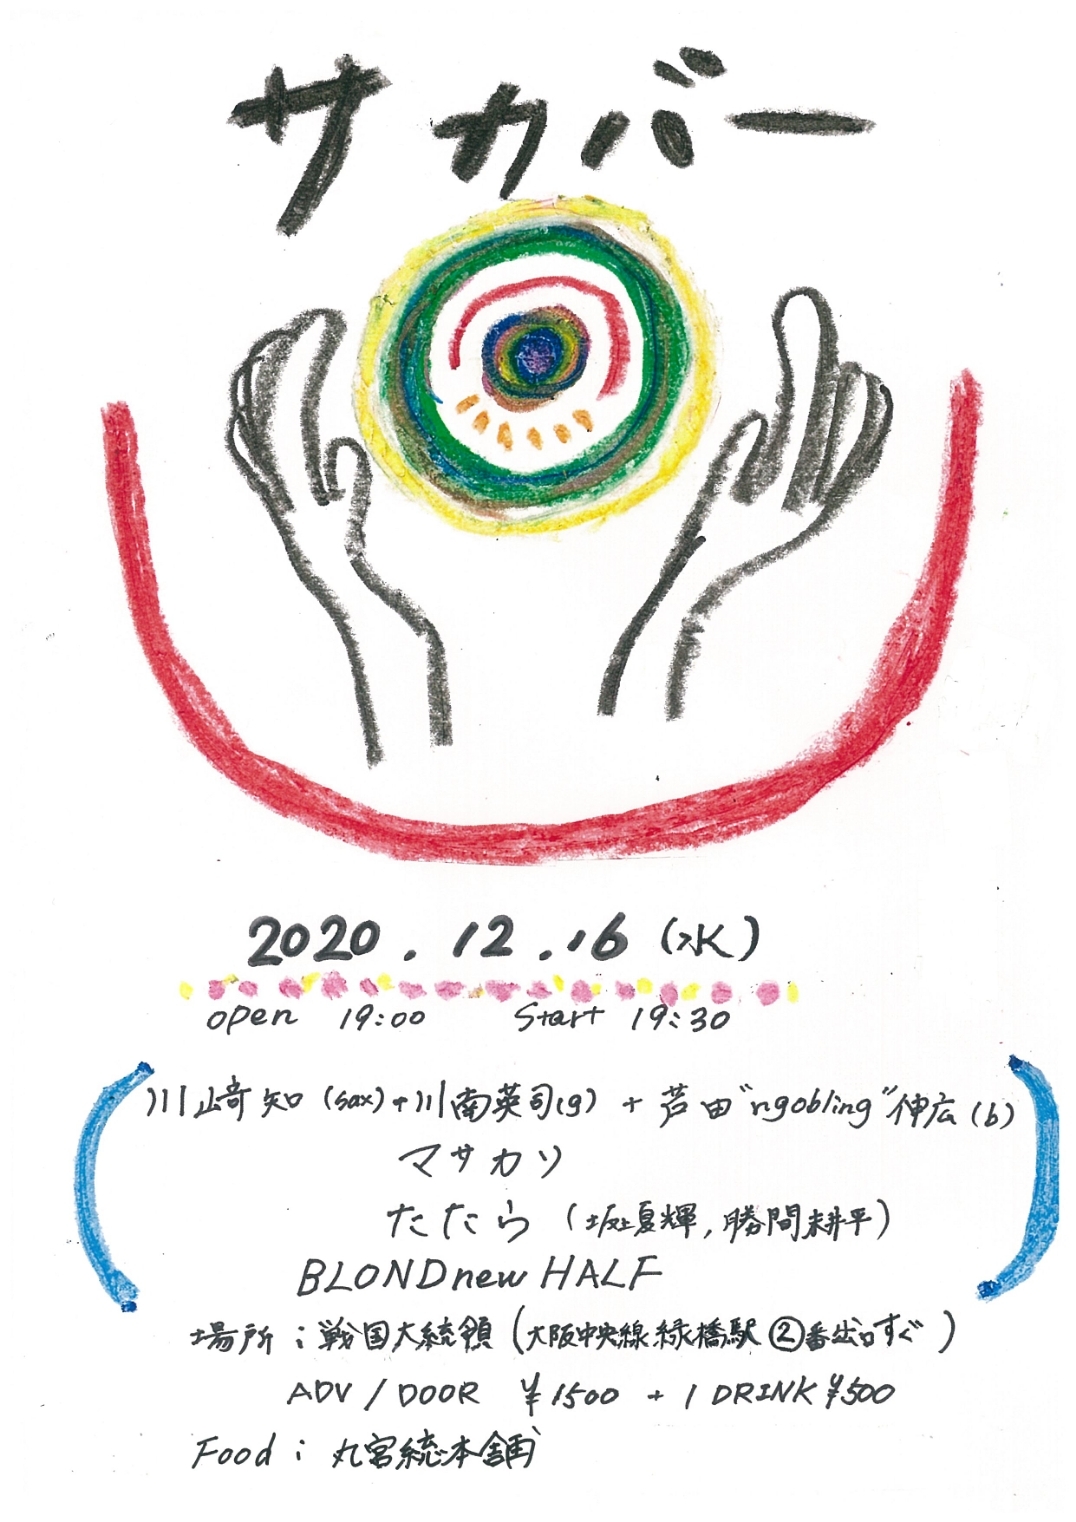 サカバー
2020.12.16(水)
open 19:00 Start 19:30
川﨑知(sax)+川南英司(g) + 芦田"ngobling"伸広(b)
マサカソ
たたら (坂上夏輝,勝間耕平)
BLONDnewHALF
場所:戦国大統領(大阪中央線緑橋駅②番出口すぐ)
ADV/DOOR ¥1500 + 1 DRINK¥500
Food:丸宮総本舗